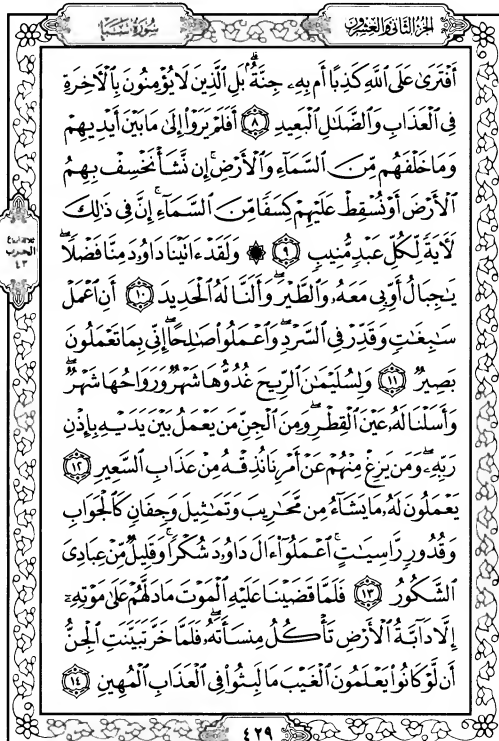 الجزء الثاني والعشرون
سورة سبأ
أَفْتَرَىٰ عَلَى اللَّهِ كَذِبًا أَم بِهِۦ جِنَّةٌۢ ۗ بَلِ الَّذِينَ لَا يُؤْمِنُونَ بِالْآخِرَةِ
فِي الْعَذَابِ وَالضَّلَٰلِ الْبَعِيدِ ٨ أَفَلَمْ يَرَوْا إِلَىٰ مَا بَيْنَ أَيْدِيهِمْ
وَمَا خَلْفَهُم مِّنَ السَّمَآءِ وَالْأَرْضِ ۚ إِن نَّشَأْ نَخْسِفْ بِهِمُ
الْأَرْضَ أَوْ نُسْقِطْ عَلَيْهِمْ كِسَفًا مِّنَ السَّمَآءِ ۚ إِنَّ فِي ذَٰلِكَ
لَآيَةً لِّكُلِّ عَبْدٍ مُّنِيبٍ ٩ ۞ وَلَقَدْ ءَاتَيْنَا دَاوُۥدَ مِنَّا فَضْلًا ۖ
يَٰجِبَالُ أَوِّبِي مَعَهُۥ وَالطَّيْرَ ۖ وَأَلَنَّا لَهُ الْحَدِيدَ ١٠ أَنِ اعْمَلْ
سَٰبِغَٰتٍ وَقَدِّرْ فِي السَّرْدِ ۖ وَاعْمَلُوا صَٰلِحًا ۖ إِنِّي بِمَا تَعْمَلُونَ
بَصِيرٌ ١١ وَلِسُلَيْمَٰنَ الرِّيحَ غُدُوُّهَا شَهْرٌ وَرَوَاحُهَا شَهْرٌ ۖ
وَأَسَلْنَا لَهُۥ عَيْنَ الْقِطْرِ ۖ وَمِنَ الْجِنِّ مَن يَعْمَلُ بَيْنَ يَدَيْهِ بِإِذْنِ
رَبِّهِۦ ۖ وَمَن يَزِغْ مِنْهُمْ عَنْ أَمْرِنَا نُذِقْهُ مِنْ عَذَابِ السَّعِيرِ ١٢
يَعْمَلُونَ لَهُۥ مَا يَشَآءُ مِن مَّحَٰرِيبَ وَتَمَٰثِيلَ وَجِفَانٍ كَالْجَوَابِ
وَقُدُورٍ رَّاسِيَٰتٍ ۚ اعْمَلُوا ءَالَ دَاوُۥدَ شُكْرًا ۚ وَقَلِيلٌ مِّنْ عِبَادِيَ
الشَّكُورُ ١٣ فَلَمَّا قَضَيْنَا عَلَيْهِ الْمَوْتَ مَا دَلَّهُمْ عَلَىٰ مَوْتِهِۦٓ
إِلَّا دَآبَّةُ الْأَرْضِ تَأْكُلُ مِنسَأَتَهُۥ ۖ فَلَمَّا خَرَّ تَبَيَّنَتِ الْجِنُّ
أَن لَّوْ كَانُوا يَعْلَمُونَ الْغَيْبَ مَا لَبِثُوا فِي الْعَذَابِ الْمُهِينِ ١٤
الحزب
٤٣
٤٢٩